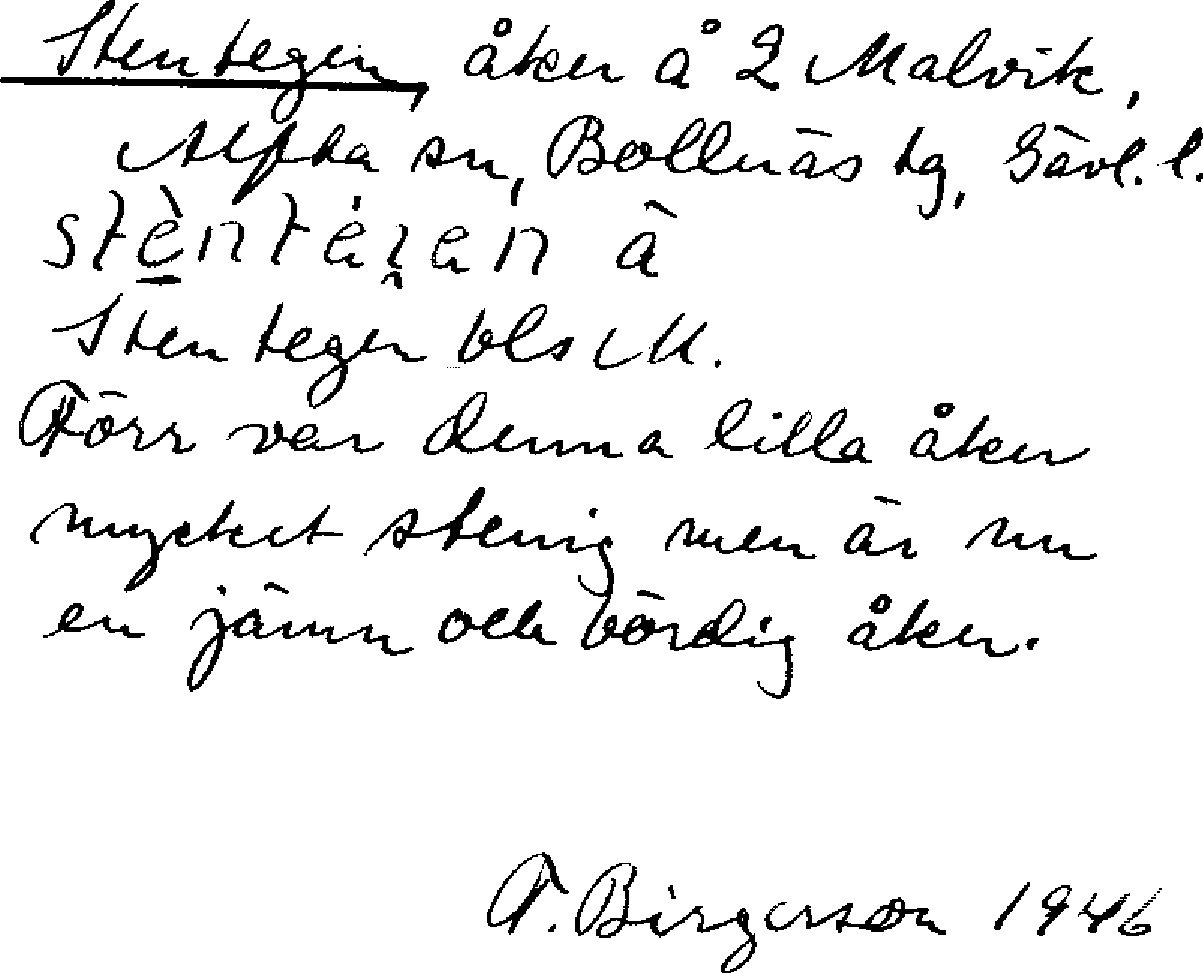 Stentegen, åker å 2 Malvik,
Alfta sn, Bollnäs tg, Gävl. l.
stè̱ntègen å
Stentegen bls M.
Förr var denna lilla åker
mycket stenig men är nu
en jämn och bördig åker.
F. Birgerson 1946